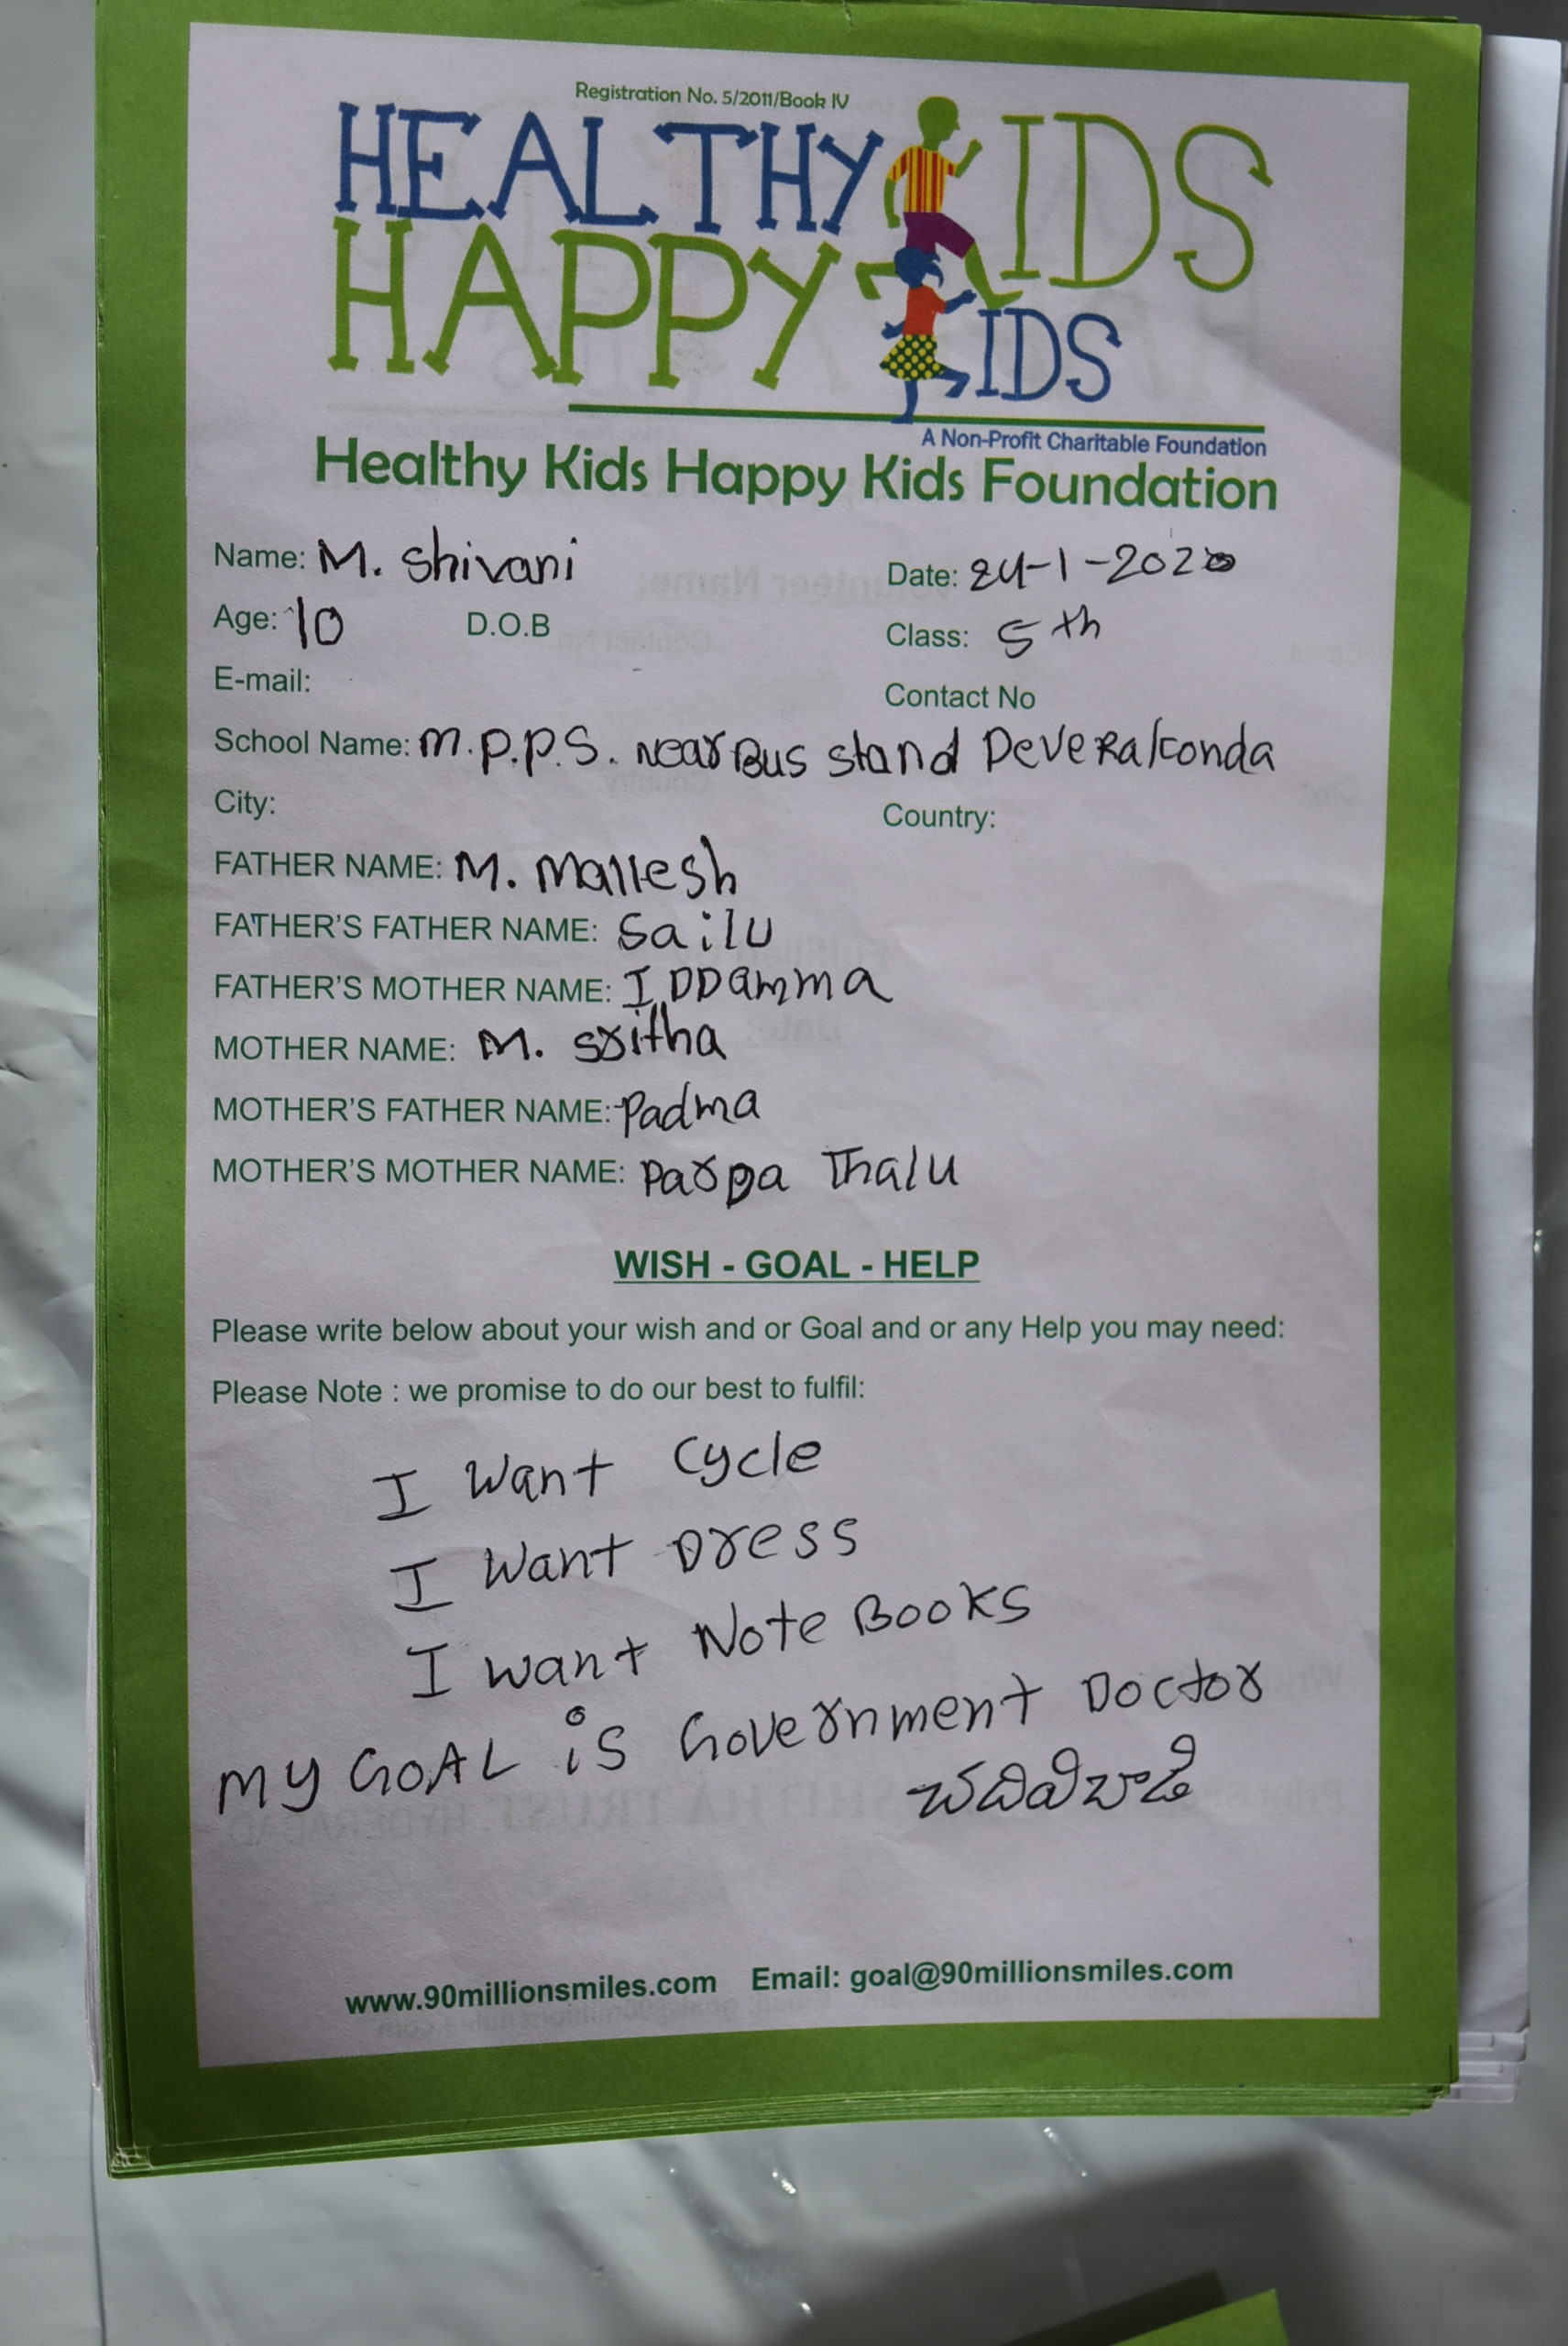 Registration No. 5/2011/Book IV
HEALTHY KIDS
HAPPY KIDS
A Non-Profit Charitable Foundation
Healthy Kids Happy Kids Foundation
Name: M. Shivani Date: 24-1-2020
Age: 10 D.O.B Class: 5th
E-mail: Contact No
School Name: M.P.P.S. Near Bus stand DeVeRakonda
City: Country:
FATHER NAME: M. Mallesh
FATHER'S FATHER NAME: Sailu
FATHER'S MOTHER NAME: IDDamma
MOTHER NAME: M. Sritha
MOTHER'S FATHER NAME: Padma
MOTHER'S MOTHER NAME: Parpa Thalu
WISH - GOAL - HELP
Please write below about your wish and or Goal and or any Help you may need:
Please Note : we promise to do our best to fulfil:
I Want Cycle
I Want Dress
I want Note Books
MY GOAL is Government Doctor
www.90millionsmiles.com Email: goal@90millionsmiles.com